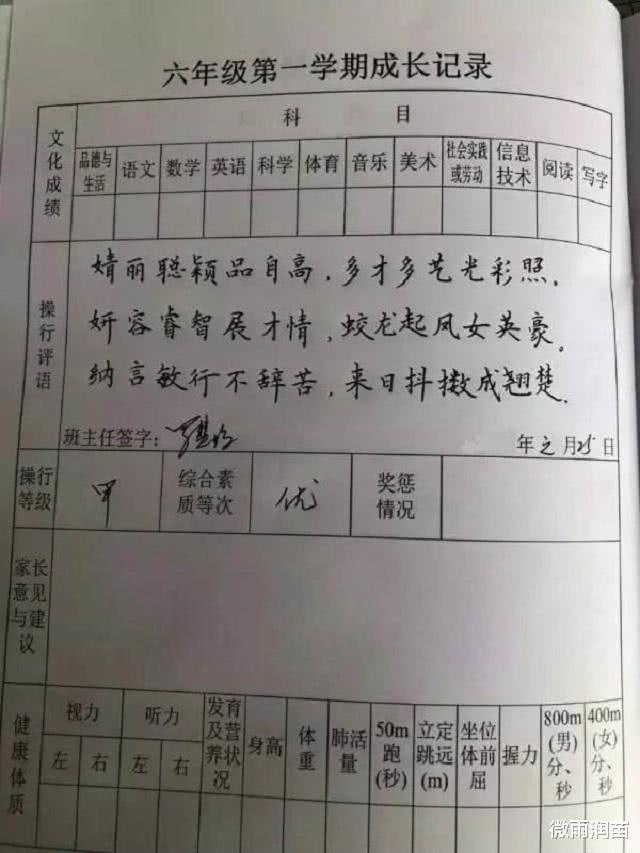 六年级第一学期成长记录
文化成绩
科 目
品德与生活 语文 数学 英语 科学 体育 音乐 美术 社会实践或劳动 信息技术 阅读 写字
操行评语
婧丽聪颖品自高，多才多艺光彩照。
妍容睿智展才情，蛟龙起凤女英豪。
纳言敏行不辞苦，来日抖擞成翘楚.
班主任签字：
年元月25日
操行等级 甲 综合素质等次 优 奖惩情况
家长意见与建议
健康体质
视力 听力 发育及营养状况 身高 体重 肺活量 50m跑(秒) 立定跳远(m) 坐位体前屈 握力 800m(男)分、秒 400m(女)分、秒
左 右 左 右
微雨润苗